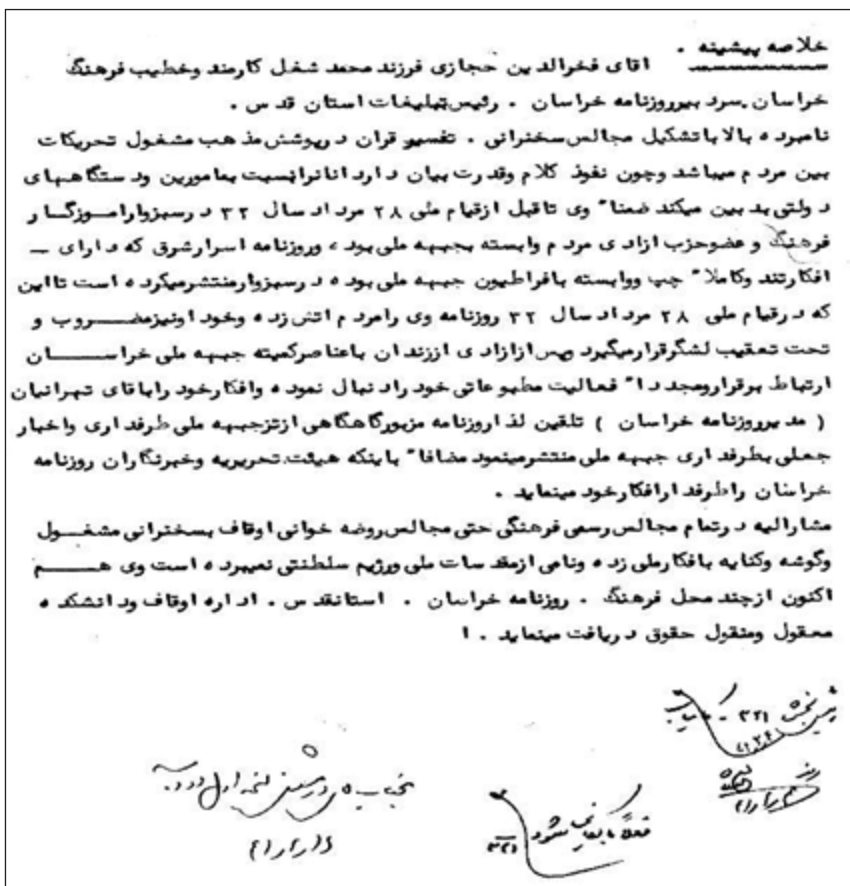 خلاصه پیشینه .
اقای فخرالدین حجازی فرزند محمد شغل کارمند وخطیب فرهنگ
خراسان سرد بیرروزنامه خراسان . رئیس تبلیغات استان قد س .
نامبرد ه بالا باتشکیل مجالس سخنرانی . تفسیر قران د رپوشش مذ هب مشغول تحریکات
بین مرد م میباشد وچون نفوذ کلام وقد رت بیان د ارد انانرانسبت بمامورین ود ستگاههای
د ولتی بد بین میکند ضمنا" وی تاقبل ازقیام ملی ۲۸ مرد اد سال ۳۲ د رسبزوارامـوزگـار
فرهنگ و عضوحزب ازاد ی مرد م وابسته بجبهه ملی بود ، وروزنامه اسرارشرق که د ارای ــ
افکارتند وکاملا" چپ ووابسته بافراطیون جبهه ملی بود ه د رسبزوارمنتشرمیکرد ه است تااین
که د رقیام ملی ۲۸ مرد اد سال ۳۲ روزنامه وی رامرد م اتش زد ه وخود اونیزمضــروب و
تحت تعقیب لشگرقرارمیگیرد وپس ازازاد ی اززند ان باعناصرکمیته جبهه ملی خراســـان
ارتباط برقرارومجد د ا" فعالیت مطبوعاتی خود راد نبال نمود ه وافکارخود راباقای تهرانیان
( مد یرروزنامه خراسان ) تلقین لذ اروزنامه مزبورگاهگاهی ازتزجبهه ملی طرفد اری واخبار
جعلی بطرفد اری جبهه ملی منتشرمینمود مضافا" باینکه هیئت تحریریه وخبرنگاران روزنامه
خراسان راطرفد ارافکارخود مینماید .
مشارالیه د رتمام مجالس رسمی فرهنگی حتی مجالس روضه خوانی اوقاف بسخنرانی مشغــول
وگوشه وکنایه بافکارملی زد ه ونامی ازمقد سات ملی ورژیم سلطنتی نمیبرد ه است وی هــــم
اکنون ازچند محل فرهنگ . روزنامه خراسان . استانقد س . اد اره اوقاف ود انشکد ه
معقول ومنقول حقوق د ریافت مینماید . ا
۳۲۱
فعلاً بایگانی شود
۳۲۱